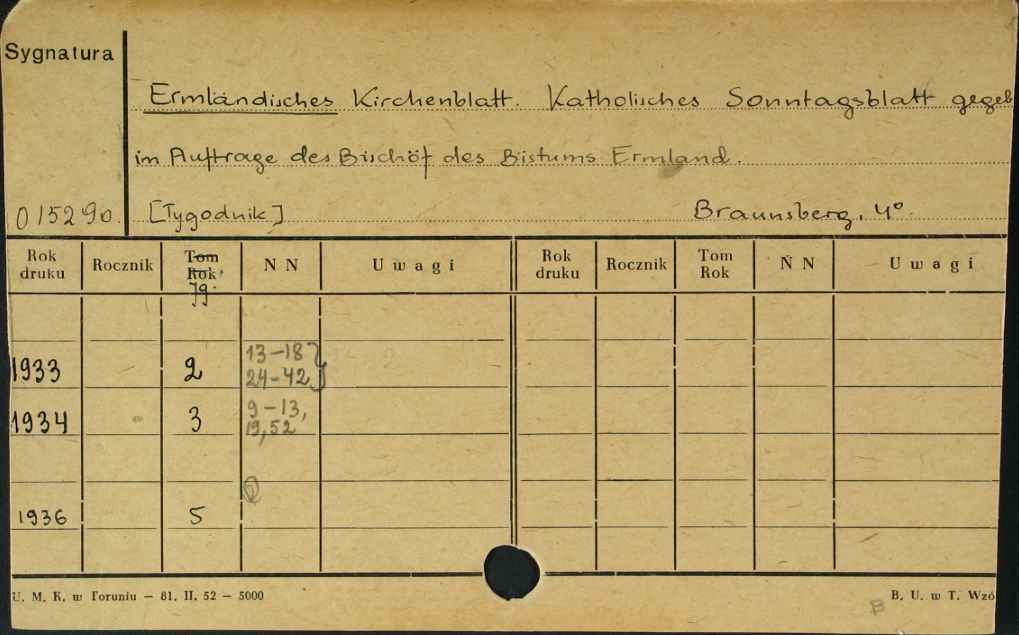 Sygnatura
Ermländisches Kirchenblatt. Katholisches Sonntagsblatt gegeb
im Auftrage des Bischöf des Bistums Ermland.
015290. [Tygodnik] Braunsberg, 4°.
Rok druku Rocznik Tom Rok Jg. N N Uwagi Rok druku Rocznik Tom Rok N N Uwagi
1933 2 13-18 24-42 }
1934 3 9-13, 19, 52
1936 5
U. M. K. w Toruniu — 81. II. 52 — 5000 B B. U. w T. Wzó